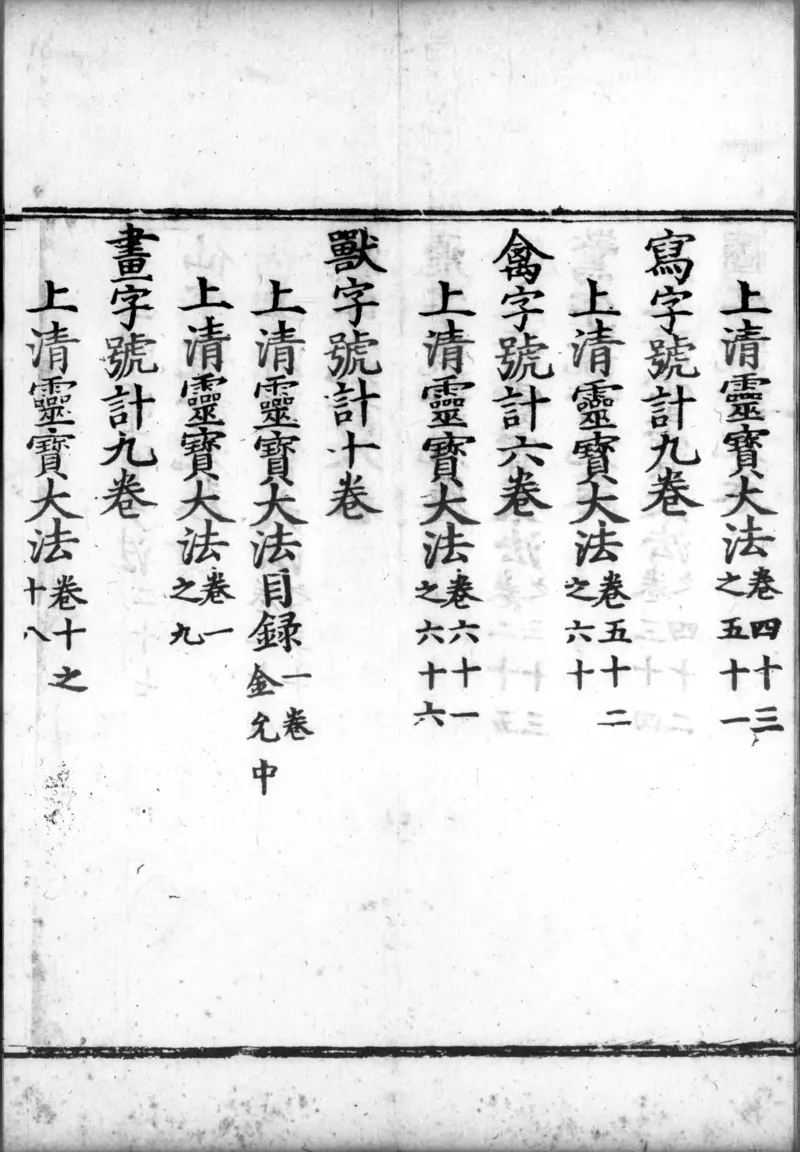 上清靈寶大法卷四十三之五十一
寫字號計九卷
上清靈寶大法卷五十二之六十
禽字號計六卷
上清靈寶大法卷六十一之六十六
獸字號計十卷
上清靈寶大法目録一卷金允中
上清靈寶大法卷一之九
畫字號計九卷
上清靈寶大法卷十之十八